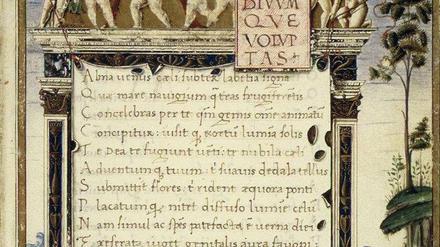 DIVUM
QVE
VOLVP
TAS
Alma venus cæli subter labētia signa
Quæ mare navigium q̃ teras frugiferētis
Concelebras per te qm̃ genus omne animātū
Concipitur: visit q̃ exortū lumīa solis
Te Dea te fugiunt vēti: te nubila cæli
Adventumq̃ tuum: t̃ suavis dedala tellus
Submittit flores: t̃ rident æquora ponti
Placatumq̃ nitet diffuso lumine celū
Nam simul ac spēs patefacta ē verna diei
reserata viget genitalis aura favoni